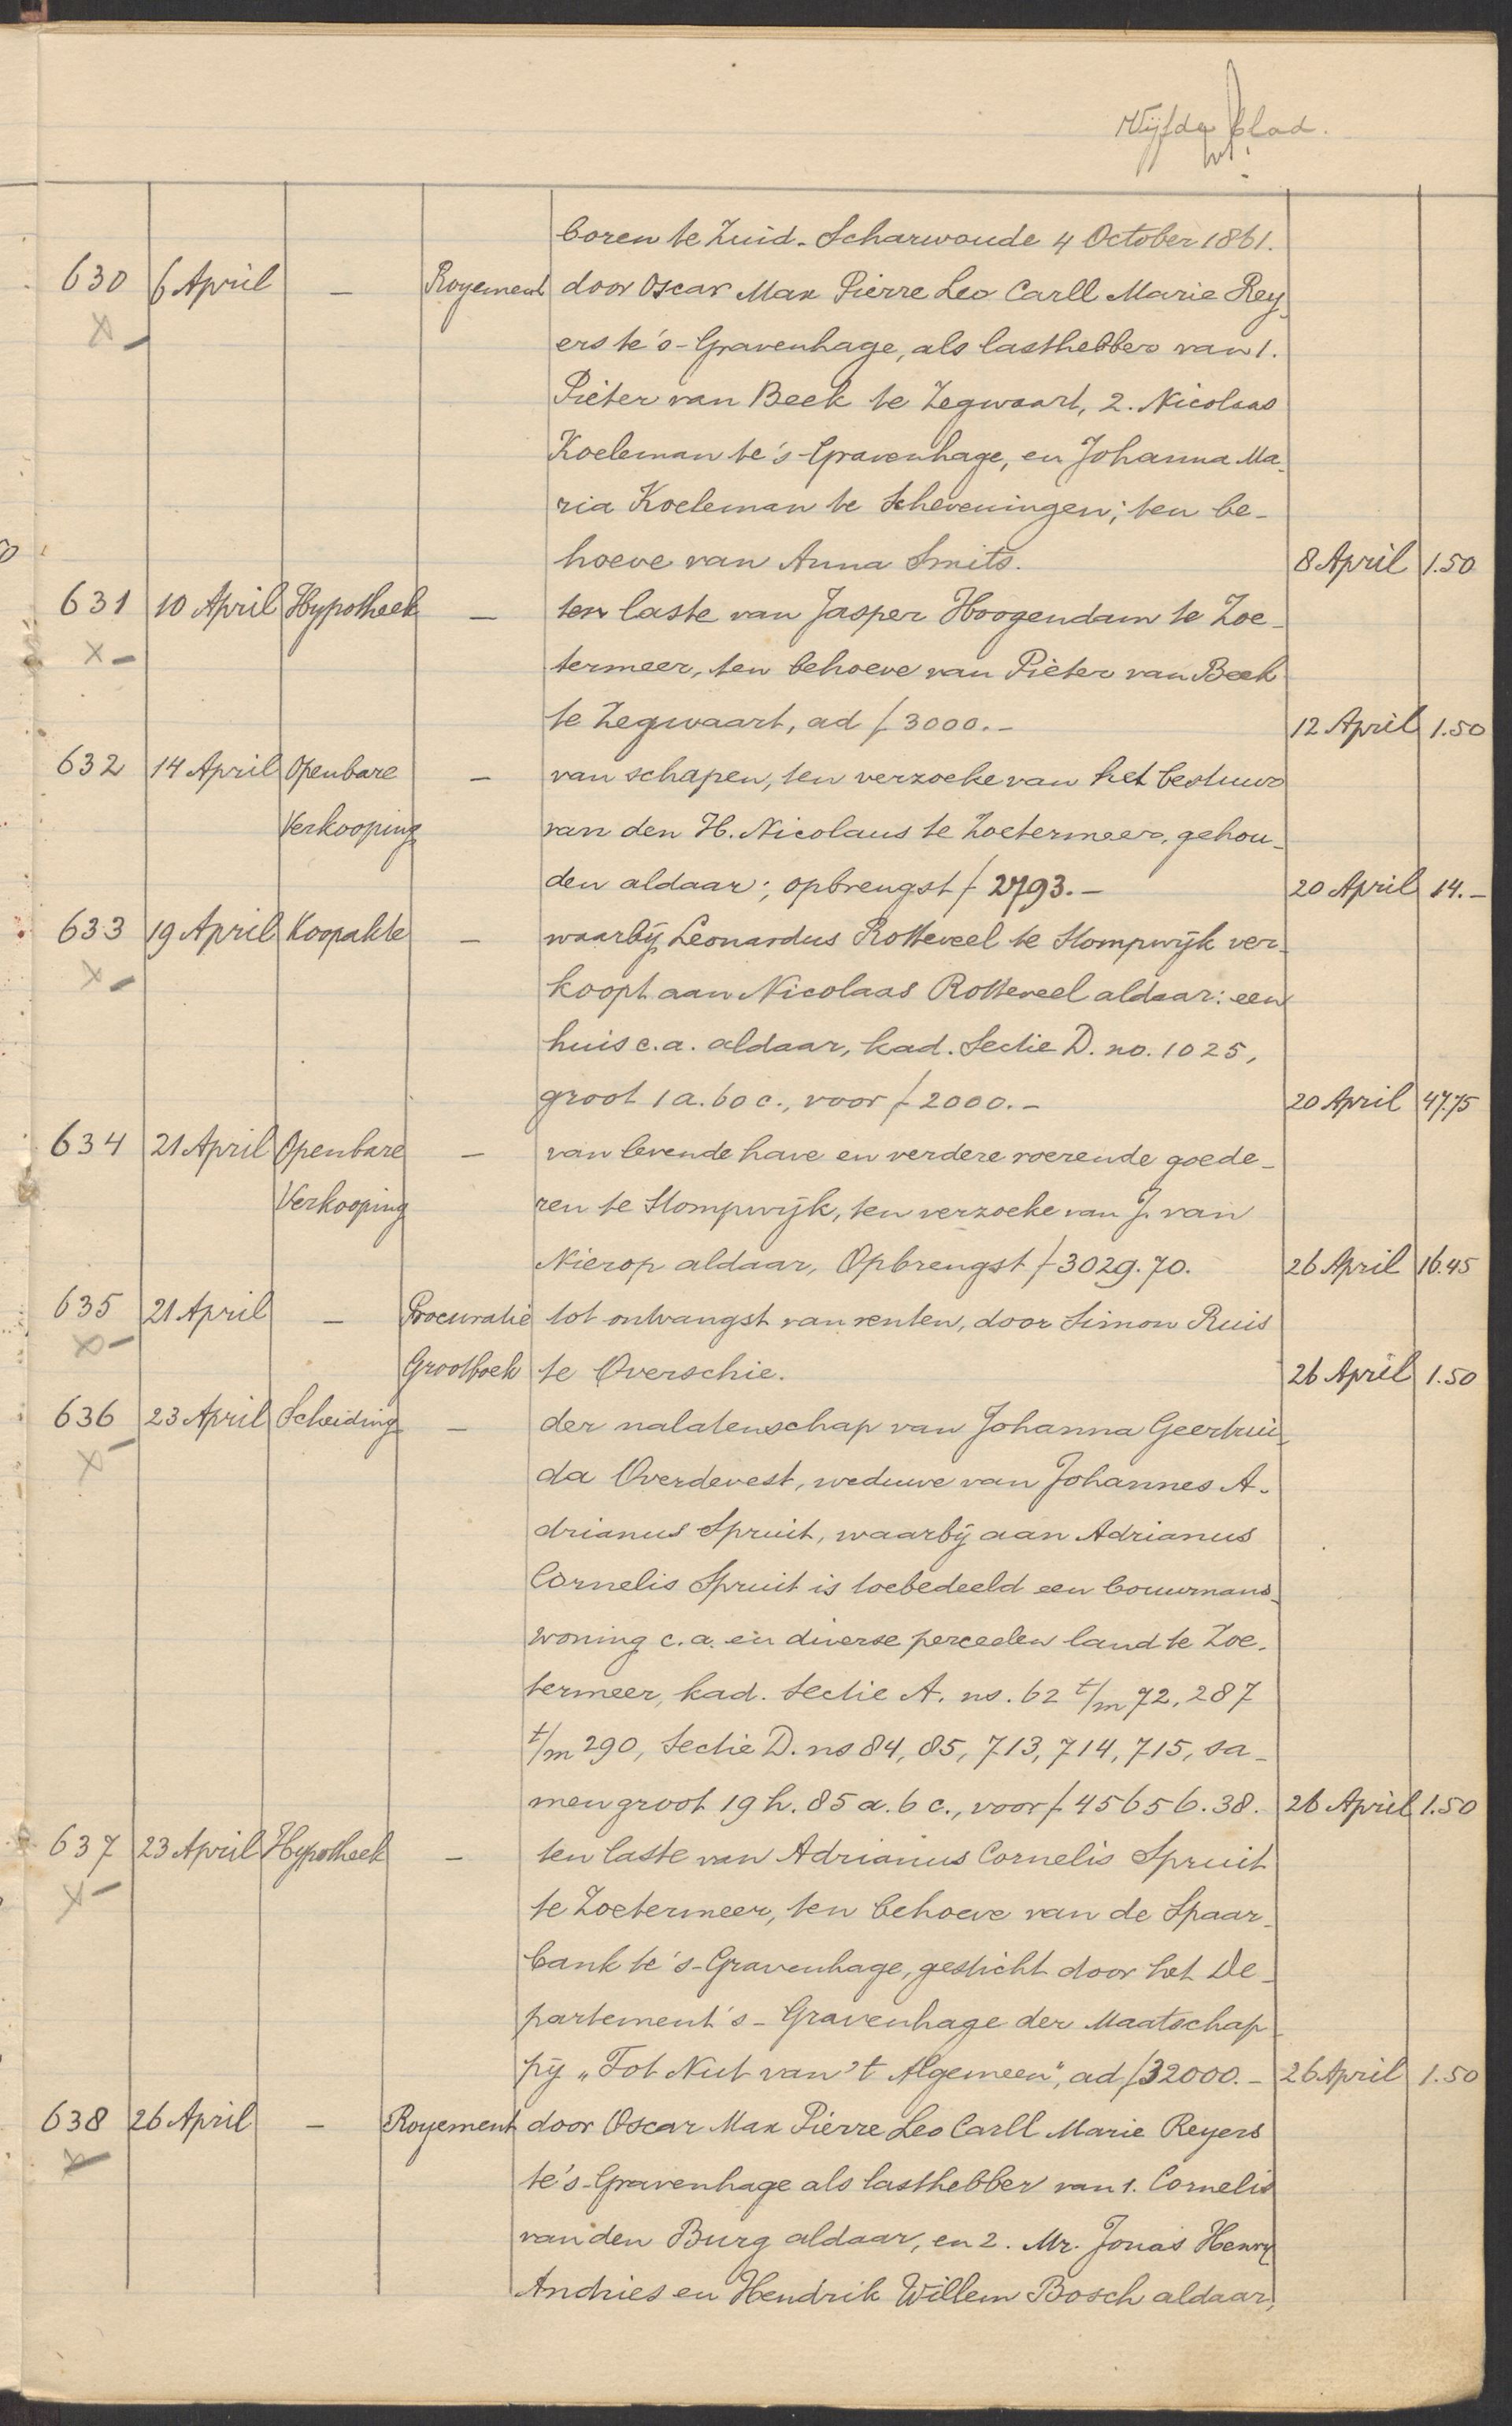 Vijfde blad.
boren te Zuid-Scharwoude 4 October 1861.
630 6 April — Royement door Oscar Max Pierre Leo Carll Marie Rey-
ers te 's-Gravenhage, als lasthebber van 1.
Pieter van Beek te Zegwaart, 2. Nicolaas
Koeleman te 's-Gravenhage, en Johanna Ma-
ria Koeleman te Scheveningen; ten be-
hoeve van Anna Smits. 8 April 1.50
631 10 April Hypotheek — ten laste van Jasper Hoogendam te Zoe-
termeer, ten behoeve van Pieter van Beek
te Zegwaart, ad f 3000.- 12 April 1.50
632 14 April Openbare — van schapen, ten verzoeke van het bestuur
Verkooping van den H. Nicolaus te Zoetermeer, gehou-
den aldaar; opbrengst f 2793.- 20 April 14.-
633 19 April Koopakte — waarbij Leonardus Rotteveel te Stompwijk ver-
koopt aan Nicolaas Rotteveel aldaar: een
huis c.a. aldaar, kad. Sectie D. no. 1025,
groot 1 a. 60 c., voor f 2000.- 20 April 47.75
634 21 April Openbare — van levende have en verdere roerende goede-
Verkooping ren te Stompwijk, ten verzoeke van J. van
Nierop aldaar, Opbrengst f 3029.70. 26 April 16.45
635 21 April — Procuratie tot ontvangst van renten, door Simon Ruis
Grootboek te Overschie. 26 April 1.50
636 23 April Scheiding — der nalatenschap van Johanna Geertrui-
da Overdevest, weduwe van Johannes A-
drianus Spruit, waarbij aan Adrianus
Cornelis Spruit is toebedeeld een bouwmans-
woning c.a. en diverse perceelen land te Zoe-
termeer, kad. Sectie A. ns. 62 t/m 72, 287
t/m 290, Sectie D. ns 84, 85, 713, 714, 715, sa-
men groot 19 h. 85 a. 6 c., voor f 45656.38. 26 April 1.50
637 23 April Hypotheek — ten laste van Adrianus Cornelis Spruit
te Zoetermeer, ten behoeve van de Spaar-
bank te 's-Gravenhage, gesticht door het De-
partement 's-Gravenhage der Maatschap-
pij „Tot Nut van 't Algemeen", ad f 32000.- 26 April 1.50
638 26 April — Royement door Oscar Max Pierre Leo Carll Marie Reyers
te 's-Gravenhage als lasthebber van 1. Cornelis
van den Burg aldaar, en 2. Mr. Jonas Henry
Andries en Hendrik Willem Bosch aldaar,